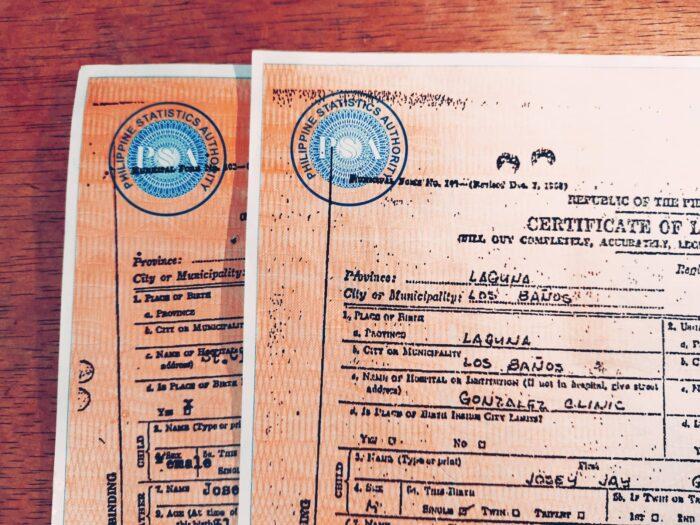 PHILIPPINE STATISTICS AUTHORITY
PSA
MUNICIPAL FORM NO. 103—(
Province:
City or Municipality:
1. PLACE OF BIRTH
a. PROVINCE
b. CITY OR MUNICIPALITY
c. NAME OF HOSPITAL
address) St.
d. IS PLACE OF BIRTH
YES X
3. NAME (Type or pri
CHILD
4. SEX 5a. THIS
Female SINGL
7. NAME JOSE
8. AGE (At time of
this birth)
BINDING
PHILIPPINE STATISTICS AUTHORITY
PSA
MUNICIPAL FORM NO. (Revised Dec. 1, 1958)
REPUBLIC OF THE PHI
CERTIFICATE OF L
(FILL OUT COMPLETELY, ACCURATELY, LEG
Regi
Province: LAGUNA
City or Municipality: LOS BAÑOS
1. PLACE OF BIRTH
a. PROVINCE LAGUNA
b. CITY OR MUNICIPALITY LOS BAÑOS
c. NAME OF HOSPITAL OR INSTITUTION (If not in hospital, give street
address) GONZALEZ CLINIC
d. IS PLACE OF BIRTH INSIDE CITY LIMITS?
YES NO
2. USU
a. P
b. C
3. NAME (Type or print) First
JOSEY JAY G
CHILD
4. SEX 5a. THIS BIRTH 5b. IF TWIN OR T
M SINGLE TWIN TRIPLET 1ST 2ND
BINDING